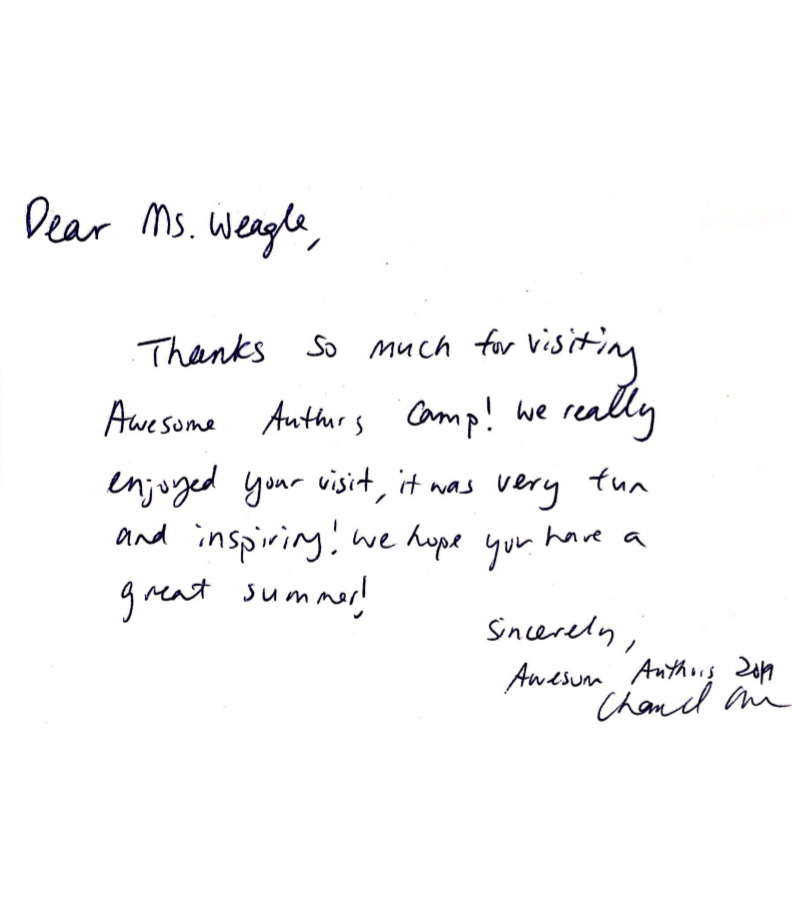 Dear Ms. Weagle,
Thanks so much for visiting
Awesome Authors Camp! We really
enjoyed your visit, it was very fun
and inspiring! We hope you have a
great summer!
Sincerely,
Awesome Authors 2019